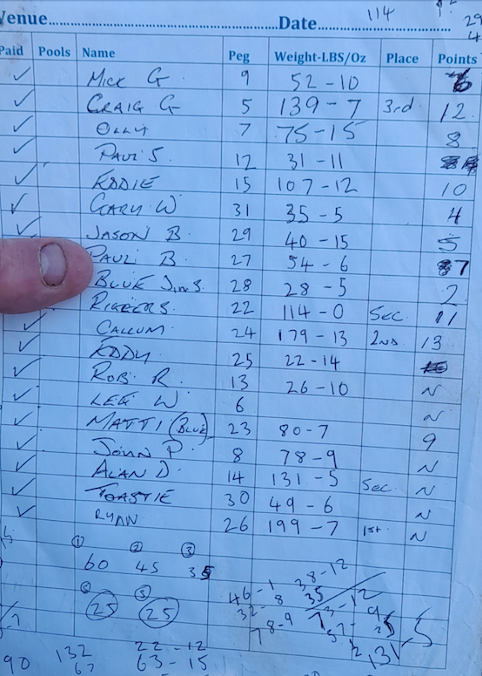 Venue.................... Date....................
114
29
Paid Pools Name Peg Weight-LBS/Oz Place Points
✓ MICK G 9 52-10 6
✓ CRAIG G 5 139-7 3rd 12
✓ OLLY 7 75-15 8
✓ PAUL S. 12 31-11
✓ EDDIE 15 107-12 10
✓ GARY W 31 35-5 4
✓ JASON B. 29 40-15 5
PAUL B. 27 54-6 7
BLUE J.n.S 28 28-5 2
RIGGERS. 22 114-0 Sec 11
✓ CALLUM. 24 179-13 2nd 13
✓ EDDY 25 22-14
✓ ROB. R. 13 26-10 N
✓ LEE W 6 N
✓ MATTI (BLUE) 23 80-7 9
✓ JOHN P. 8 78-9 N
✓ ALAN D. 14 131-5 Sec. N
✓ TOASTIE 30 49-6 N
✓ RYAN 26 199-7 1st. N
① ② ③
60 45 35
④ ⑤
25 25
46-1 38-12
32-8 35
78-9 73-12
90 132 22-12
67 63-15